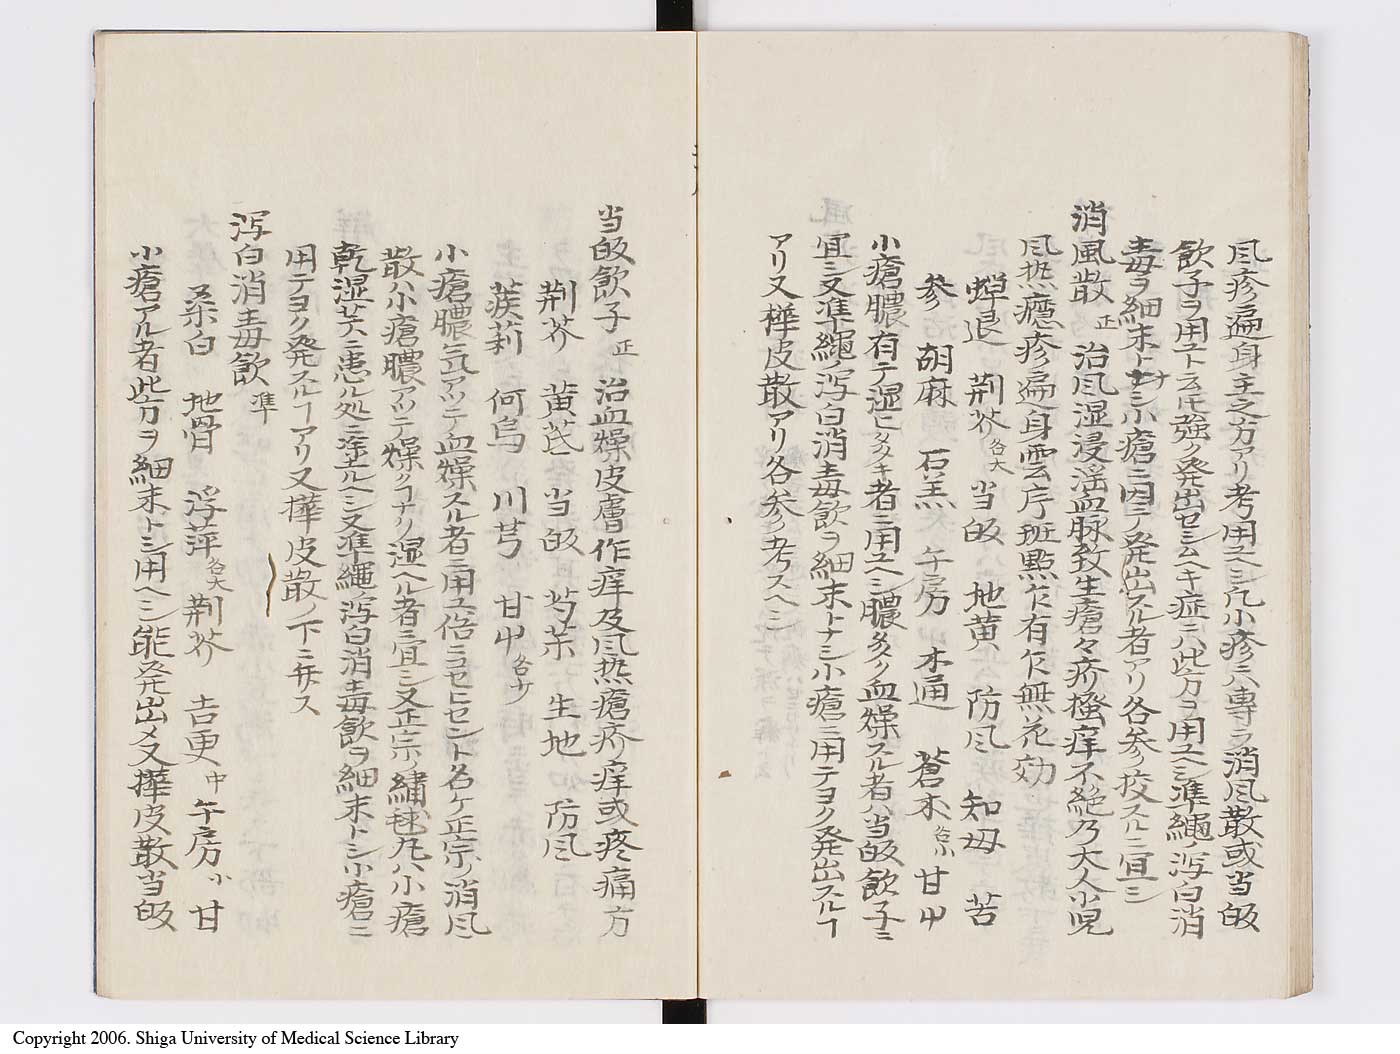 風疹遍身主之方アリ考用ユヘシ凡小疹ニハ專ラ消風散或当皈
飲子ヲ用ユト云𪜈強ク発出セシムヘキ症ニハ此方ヲ用ユヘシ準繩ノ瀉白消
毒ヲ細末トナシ小瘡ニ因テ発出スル者アリ各参ク挍スルニ宜シ
消風散 正 治風湿浸淫血脉致生瘡々疥搔痒不絶乃大人小児
風热癮疹遍身雲片斑點乍有乍無花効
蟬退 荆芥 各大 当皈 地黄 防風 知母 苦
参 胡麻 石羔 午房 木通 蒼朮 各小 甘中
小瘡膿有テ湿ヒタタキ者ニ用ユヘシ膿多ク血燥スル者ハ当皈飲子ニ
宜シ又準繩ノ瀉白消毒飲ヲ細末トナシ小瘡ニ用テヨク発出スルヿ
アリ又樺皮散アリ各参ク考スヘシ
当皈飲子 正 治血燥皮膚作痒及風热瘡疥痒或疼痛方
荆芥 黄芪 当皈 芍薬 生地 防風
蒺莉 何烏 川芎 甘中 各少
小瘡膿气アツテ血燥スル者ニ用ユ俗ニコセヒセント名ケ正宗ノ消風
散ハ小瘡膿アツテ燥クヿナリ湿ヘル者ニ宜シ又正宗ノ繡毬丸ハ小瘡
乾湿共ニ患ル処ニ塗ルヘシ又準繩ノ瀉白消毒飲ヲ細末トシ小瘡ニ
用テヨク発スルヿアリ又樺皮散ノ下ニ弁ス
瀉白消毒飲 準
桑白 地骨 浮萍 各大 荆芥 吉更 中 午房 小 甘
小瘡アル者此方ヲ細末トシ用ヘシ能発出メ又樺皮散当皈
Copyright 2006. Shiga University of Medical Science Library